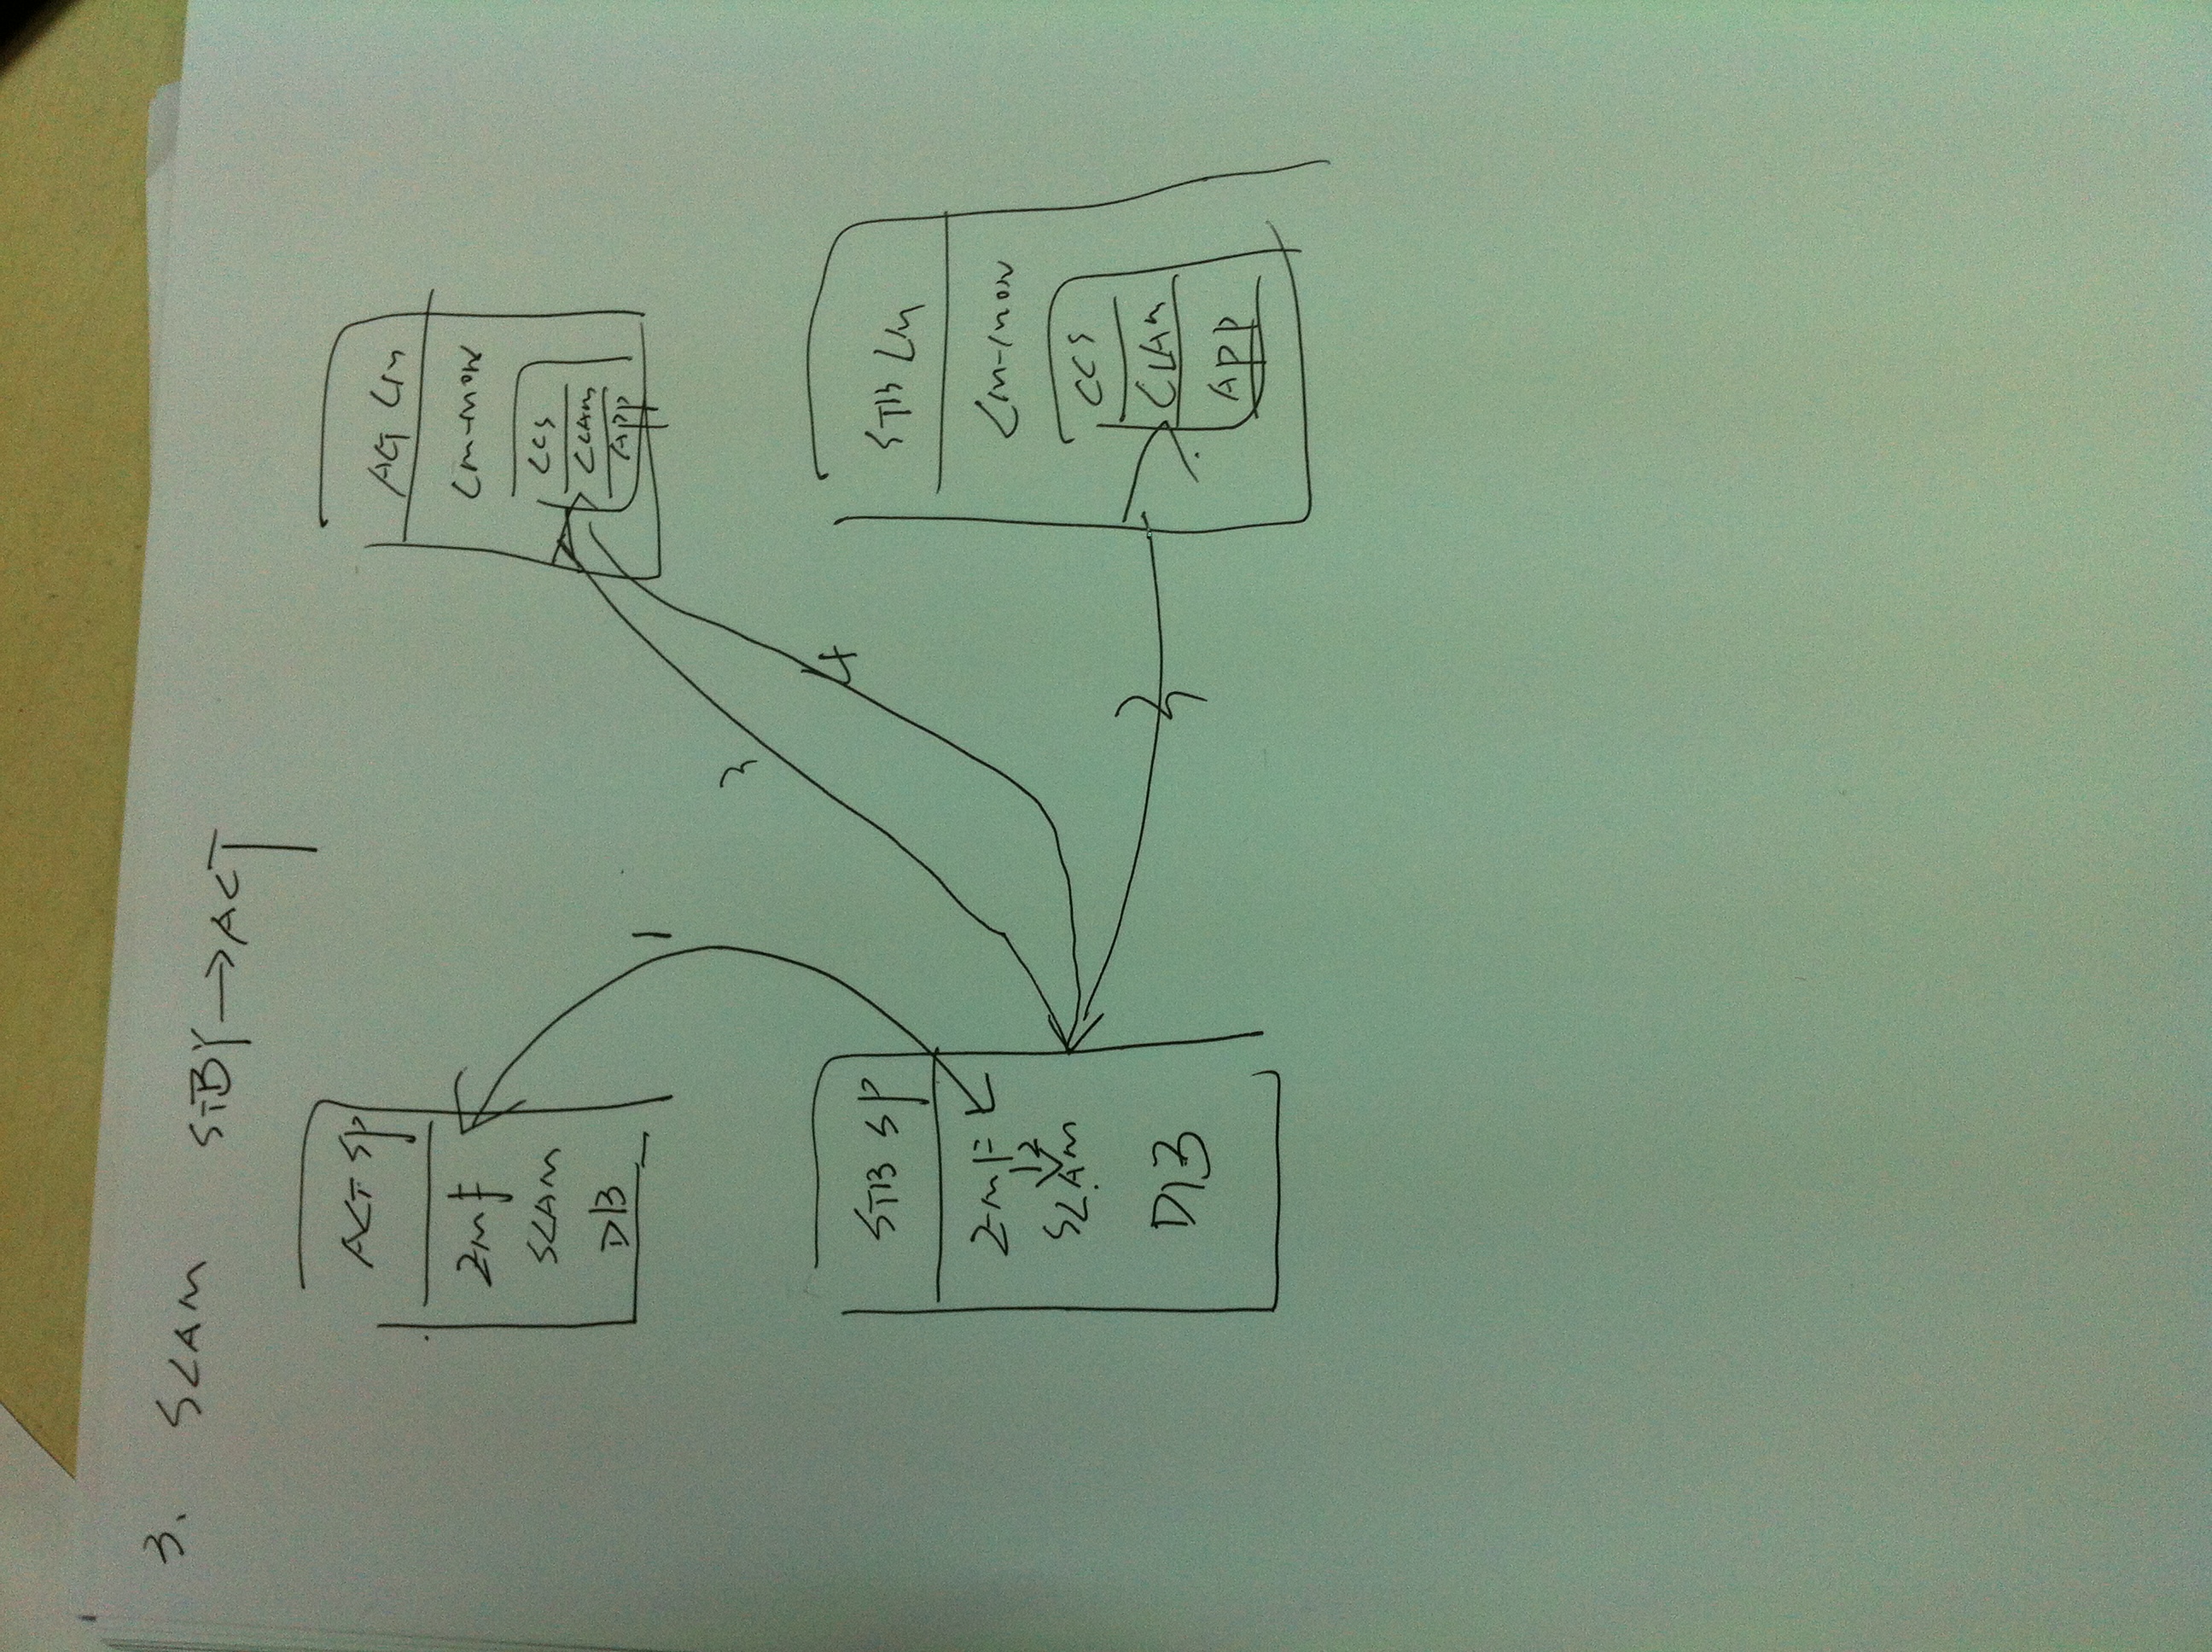 3. SCAM STBY → ACT
ACT SP
ZMF
SCAM
DB
1
ACT LM
LM-MON
CCS
CLAM
APP
3
4
STB SP
ZMF
2
SCAM
DB
3
STB LM
LM-MON
CCS
CLAM
APP